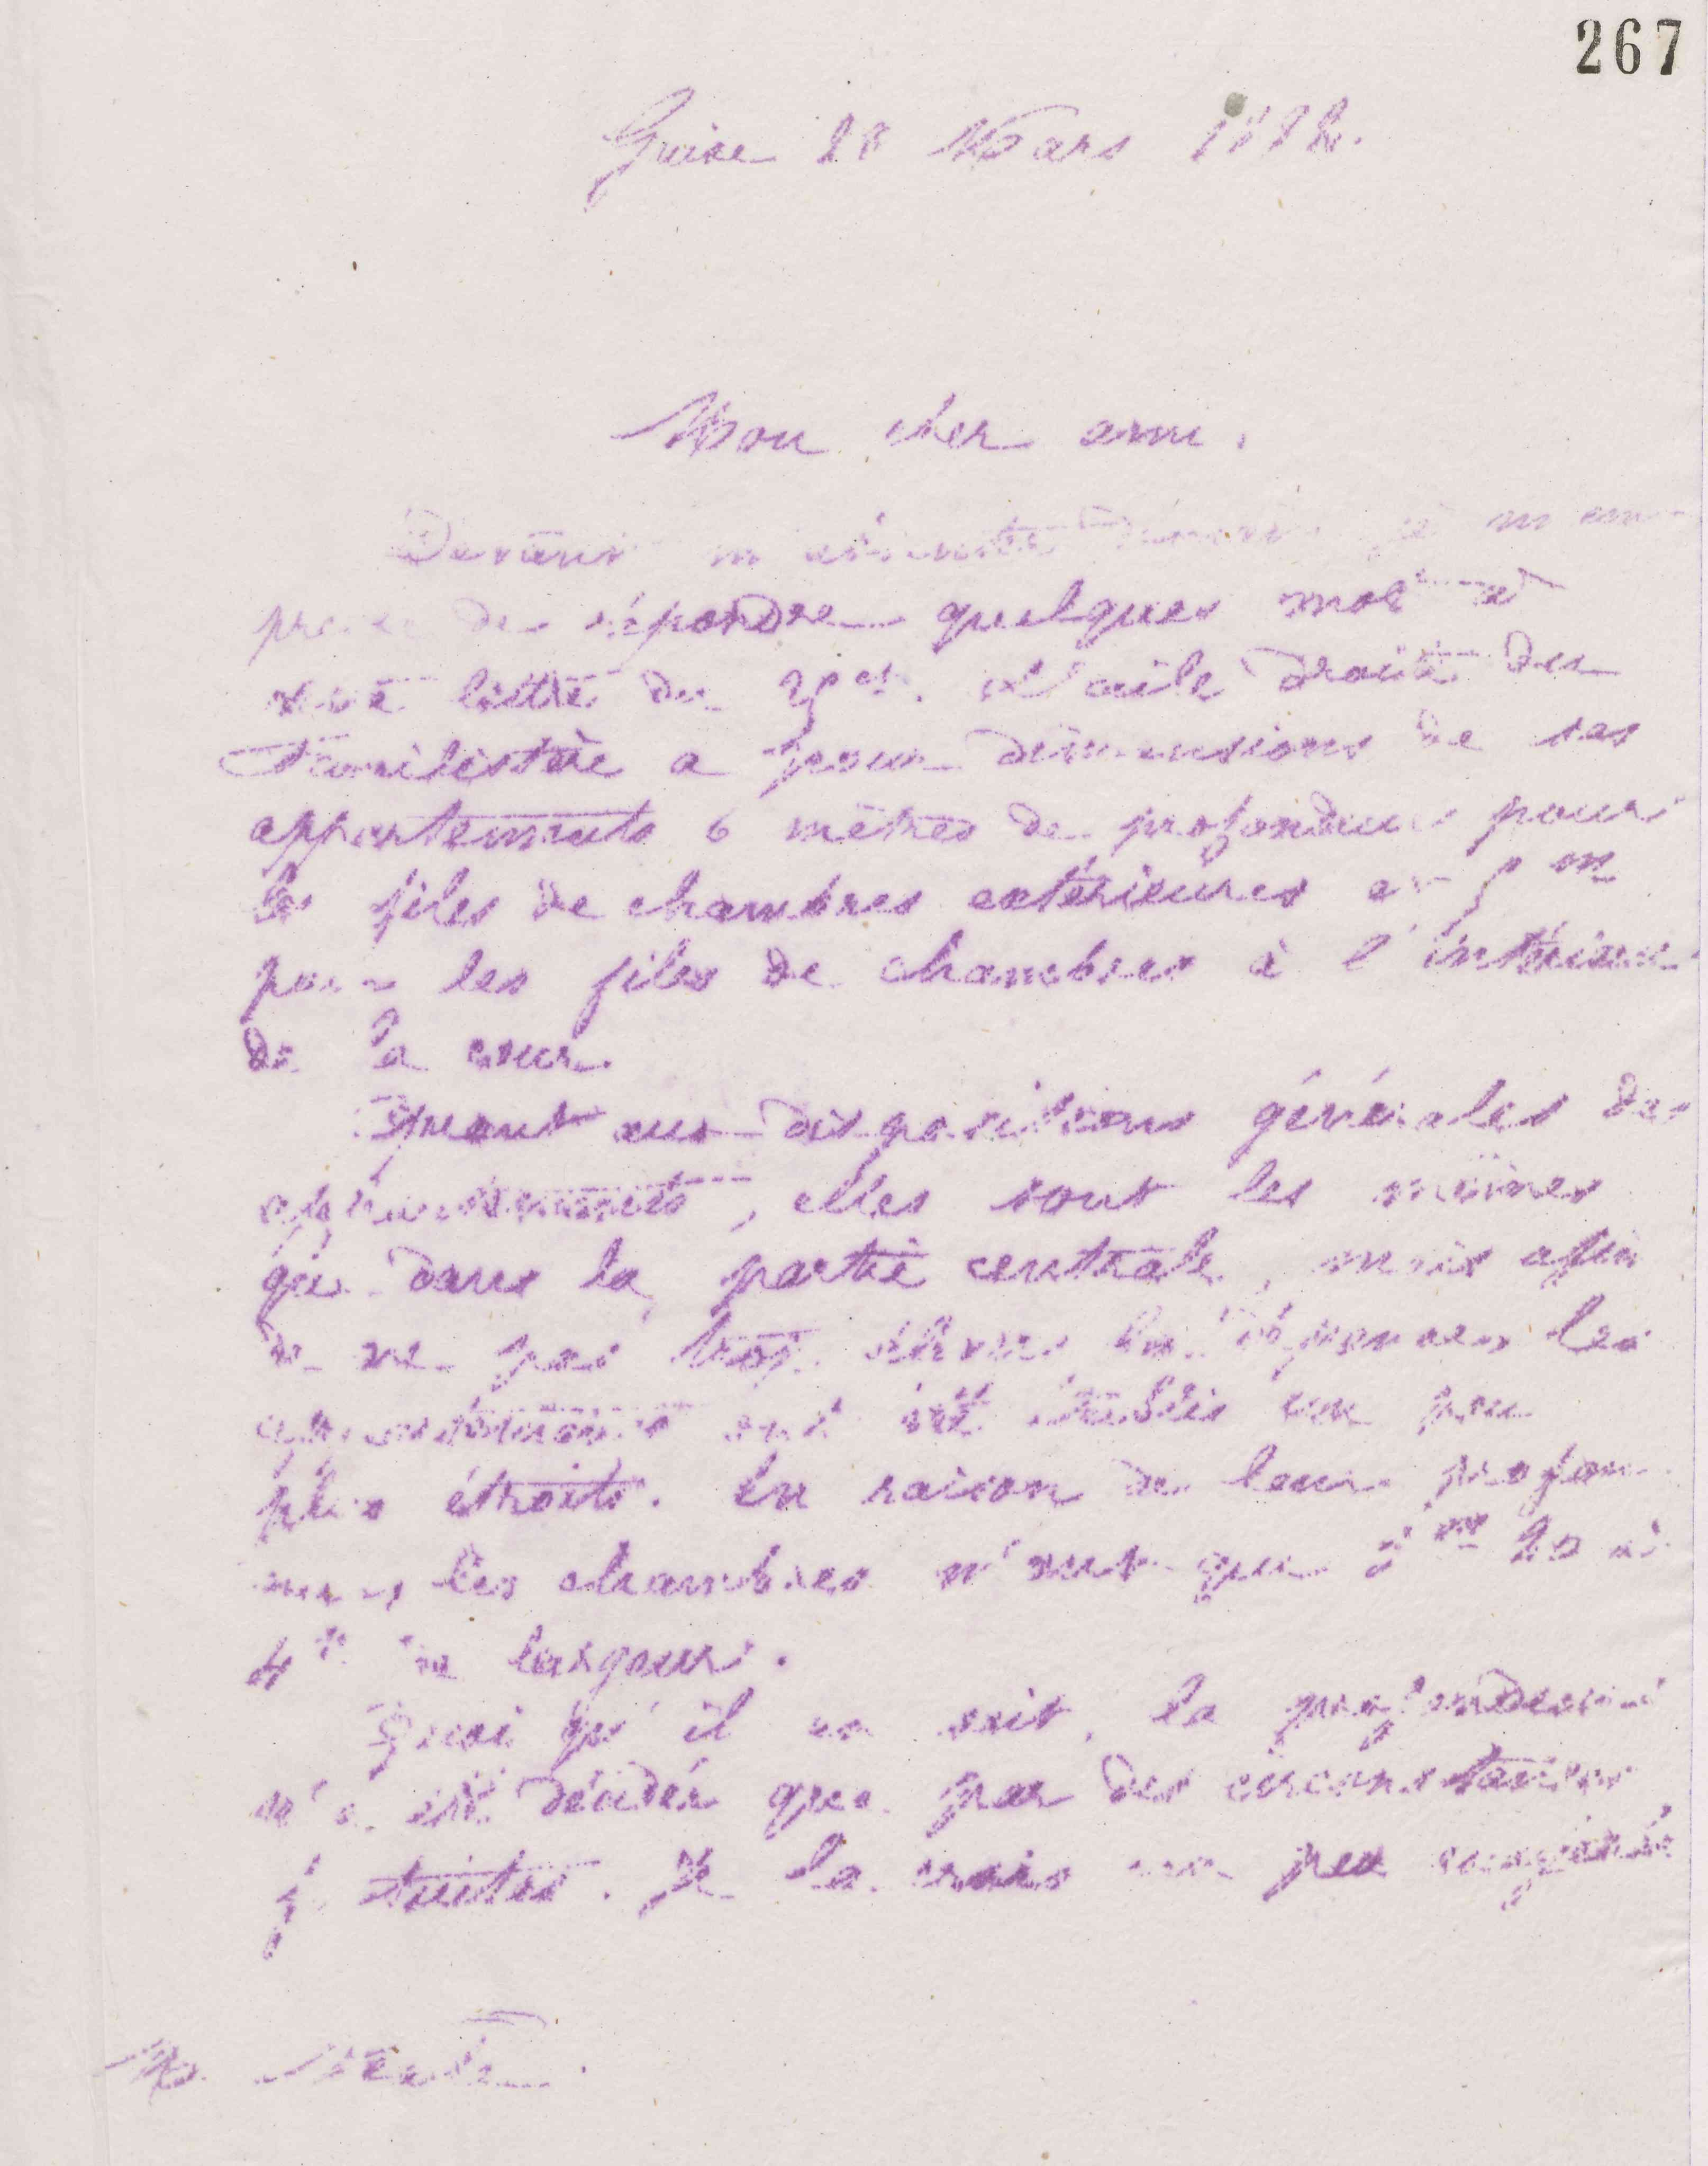 267
Guise 28 Mars 1882.
Mon cher ami,
Devant m'absenter demain je m'em-
presse de répondre quelques mots à
votre lettre du 25 ct. L'aile droite du
Familistère a pour dimensions de ses
appartements 6 mètres de profondeur pour
les files de chambres extérieures et 5 m
pour les files de chambres à l'intérieur
de la cour.
Quant aux dispositions générales des
appartements, elles sont les mêmes
que dans la partie centrale, mais afin
de ne pas trop élever les dépenses les
appartements ont été établis un peu
plus étroits. En raison de leur profon-
deur les chambres n'ont que 3 m 20 à
4 m de largeur.
Quoi qu'il en soit, la profondeur
n'a été décidée que par des circonstances
fortuites. Je la crois un peu exagérée
M.